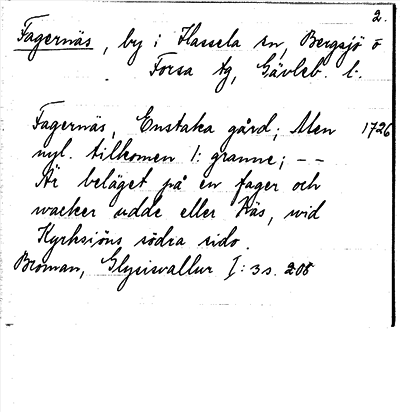 2.
Fagernäs, by i Hassela sn, Bergsjö o
Forsa tg, Gävleb. l.
Fagernäs, Enstaka gård; Men 1726
nyl. tilkomen 1: granne; – –
Är beläget på en fager och
wacker udde eller Näs, wid
Kyrksiöns södra sido.
Broman, Glysisvallur I: 3 s. 208